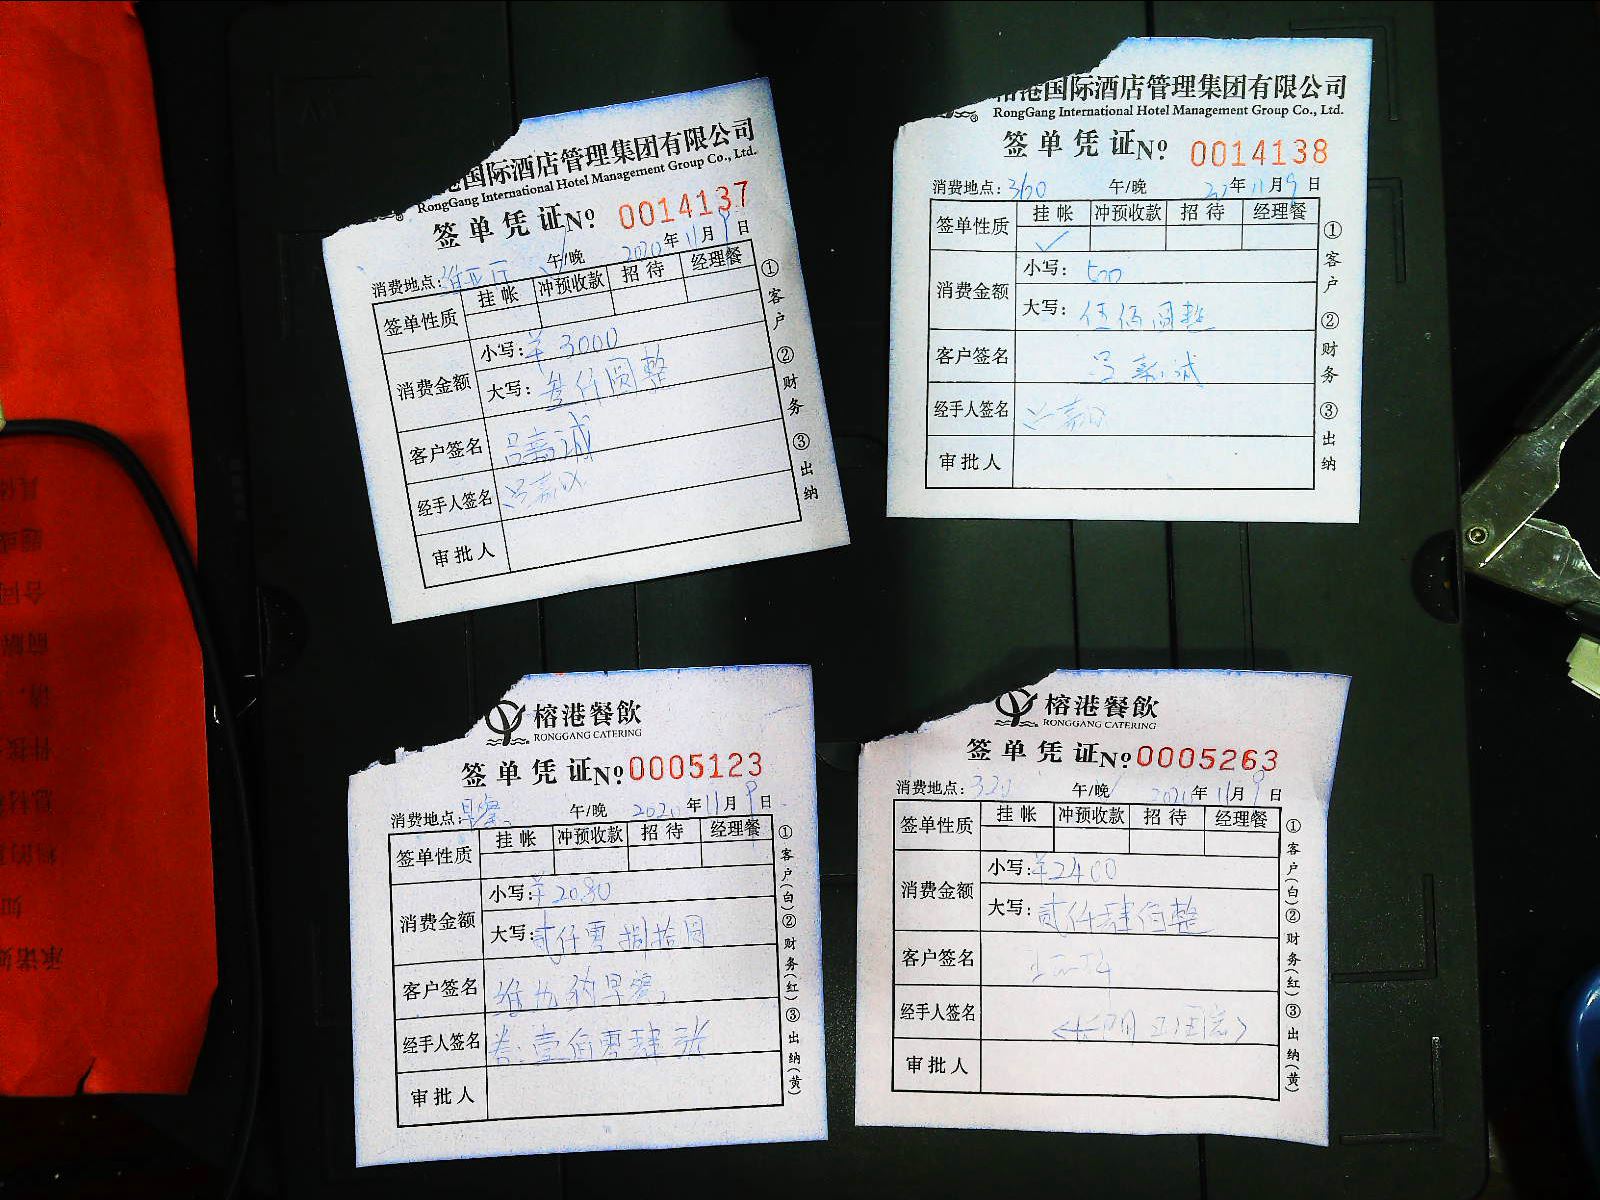 港国际酒店管理集团有限公司
RongGang International Hotel Management Group Co., Ltd.
签单凭证№ 0014137
消费地点: 午/晚 2020年11月9日
签单性质 挂帐 冲预收款 招待 经理餐
消费金额 小写:¥3000
大写:叁仟圆整
客户签名 吕嘉诚
经手人签名
审批人
①客户 ②财务 ③出纳
榕港国际酒店管理集团有限公司
RongGang International Hotel Management Group Co., Ltd.
签单凭证№ 0014138
消费地点:320 午/晚 年11月9日
签单性质 挂帐 冲预收款 招待 经理餐
✓
消费金额 小写:500
大写:伍佰圆整
客户签名 吕嘉诚
经手人签名
审批人
①客户 ②财务 ③出纳
榕港餐飲
RONGGANG CATERING
签单凭证№0005123
消费地点:早餐 午/晚 2020年11月9日
签单性质 挂帐 冲预收款 招待 经理餐
消费金额 小写:¥2080
大写:贰仟零捌拾圆
客户签名 早餐
经手人签名 券:壹佰零肆张
审批人
①客户(白)②财务(红)③出纳(黄)
榕港餐飲
RONGGANG CATERING
签单凭证№0005263
消费地点:320 午/晚 2020年11月9日
签单性质 挂帐 冲预收款 招待 经理餐
消费金额 小写:¥2400
大写:贰仟肆佰整
客户签名
经手人签名
审批人
①客户(白)②财务(红)③出纳(黄)